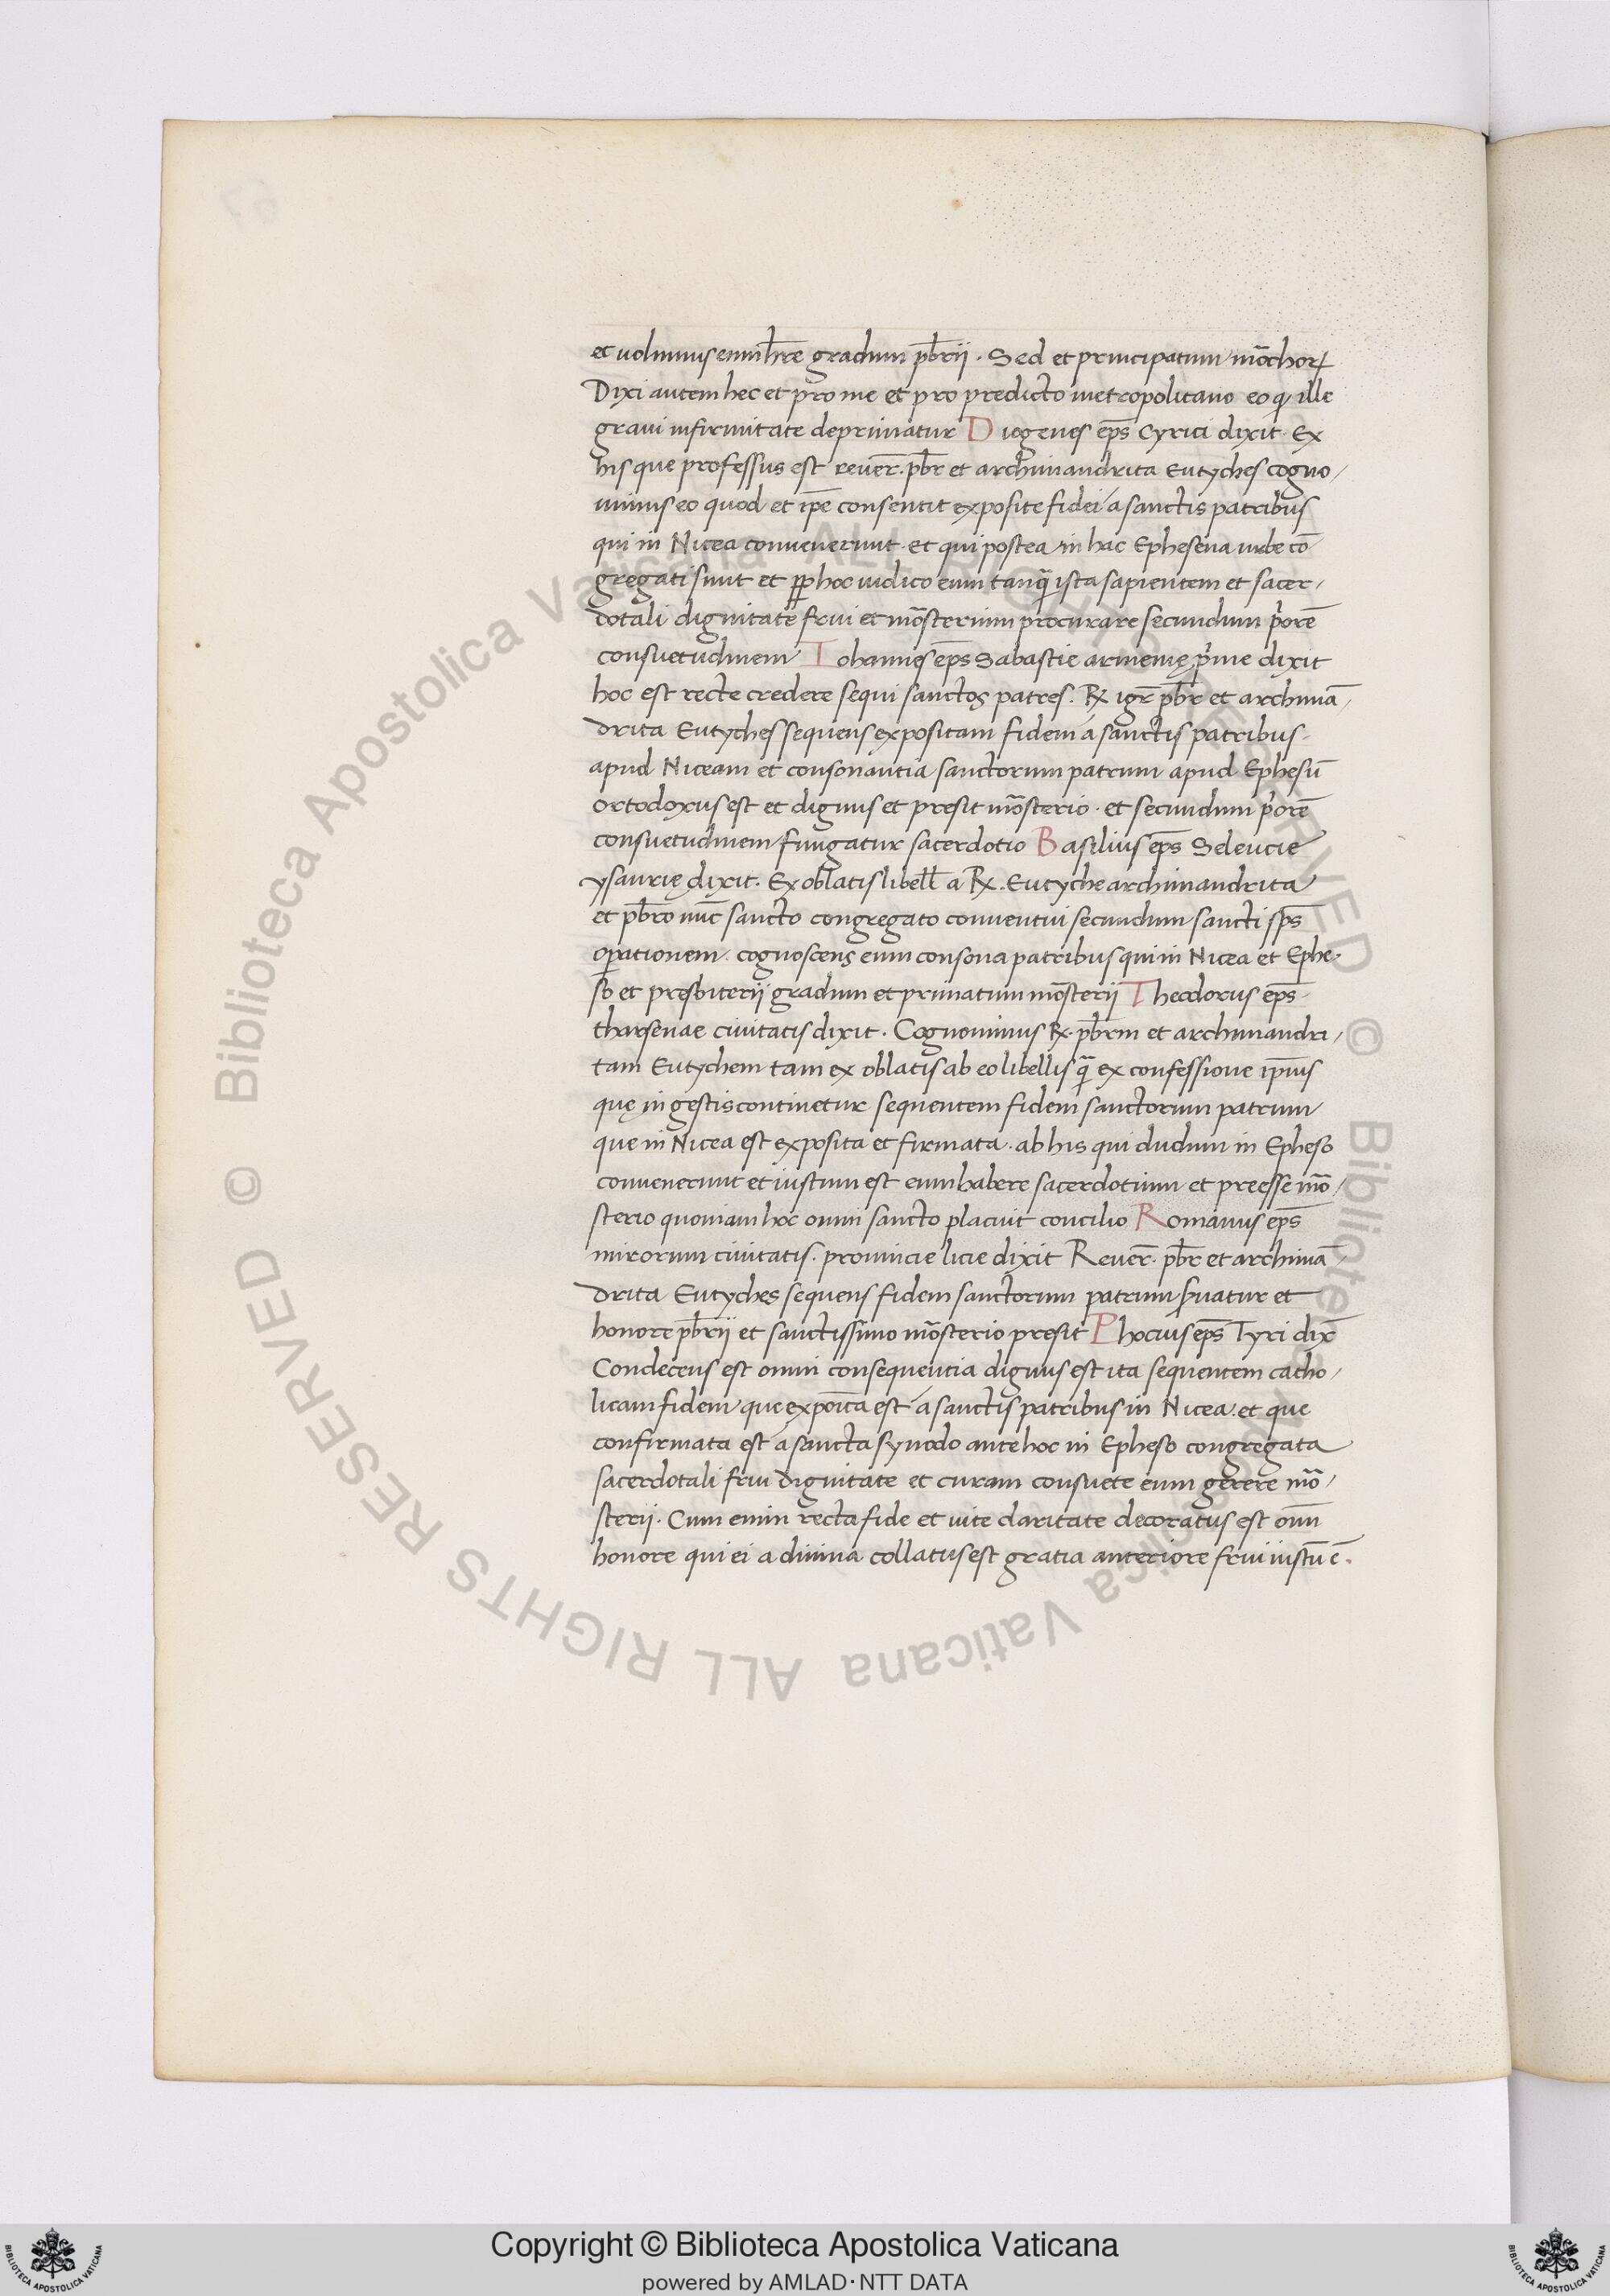 et uolumus eum hr̄e gradum pb̄rii . Sed et principatum mōchoꝝ
Dixi autem hec et pro me et pro predicto metropolitano eo ꝙ ille
graui infirmitate deprimatur Diogenes ep̄s Cyrici dixit . Ex
his que professus est reuer̄ . pb̄r et archimandrita Eutyches cogno-
uimus eo quod et ip̄e consentit exposite fidei a sanctis patribus
qui in Nicea conuenerunt . et qui postea in hac Ephesena urbe cō
gregati sunt et ꝓp hoc iudico eum tanq̄ ista sapientem et sacer-
dotali dignitate frui et mōsterium procurare secundum p̄orē
consuetudinem Iohannes ep̄s Sabastie armenię p̄me dixit
hoc est recte credere sequi sanctos patres . R̸ igr̄ pb̄r et archimā-
drita Eutyches sequens expositam fidem á sanctis patribus
apud Niceam et consonantia sanctorum patrum apud Ephesū
ortodoxus est et dignus et presit mōsterio . et secundum p̄orē
consuetudinem fungatur sacerdotio Basilius ep̄s Seleucie
ysaurię dixit . Ex oblatis libell̄ a R̸ . Eutyche archimandrita
et pb̄ro nūc sancto congregato conuentui secundum sancti sp̄s
oꝑationem . cognoscens eum consona patribus qui in Nicea et Ephe-
so et presbiterii gradum et primatum mōsterii Theodorus ep̄s
tharsenae ciuitatis dixit . Cognouimus R̸ . pb̄rm et archimandri-
tam Eutychem tam ex oblatis ab eo libellis q̄ ex confessione ip̄ius
quę in gestis continetur sequentem fidem sanctorum patrum
que in Nicea est exposita et firmata . ab his qui dudum in Epheso
conuenerunt et iustum est eum habere sacerdotium et preesse mō-
sterio quoniam hoc omni sancto placuit concilio Romanus ep̄s
mirorum ciuitatis . prouincie licie dixit Reuer̄ . pb̄r et archimā-
drita Eutyches sequens fidem sanctorum patrum ẜuatur et
honore pb̄rii et sanctissimo mōsterio presit Phocius ep̄s Tyri dix̄
Condecens est omni consequentia dignus est ita sequentem catho-
licam fidem que expoīta est á sanctis patribus in Nicea . et que
confirmata est á sancta synodo ante hoc in Epheso congregata
sacerdotali frui dignitate et curam consuete eum gerere mō-
sterii . Cum enim recta fide et uite claritate decoratus est om̄
honore qui ei a diuina collatus est gratia anteriore frui iustū ē .
Copyright © Biblioteca Apostolica Vaticana
powered by AMLAD・NTT DATA